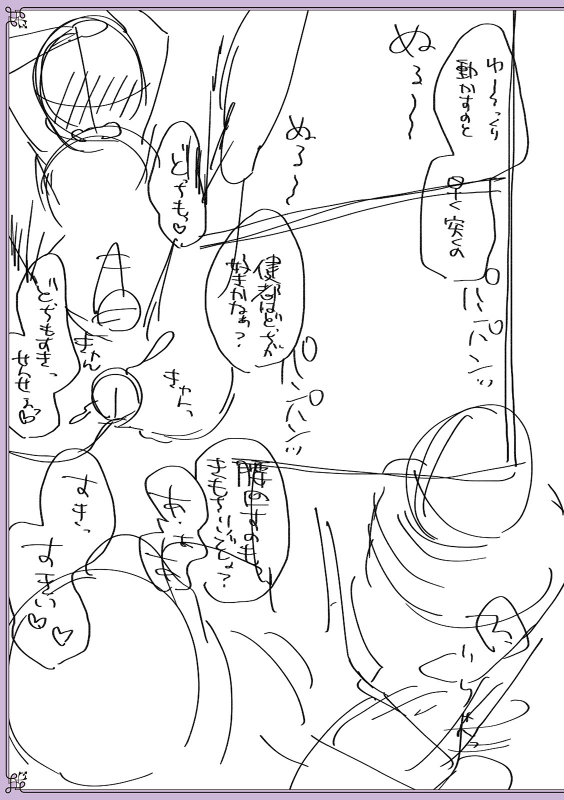 ゆ～っくり
動かすのと
早く突くの
ぬる～～
ぬる～～
パンパンッ
健都はどっちが
好きかなぁ？
パンパンッ
どっちもっ♡
どっちもすきっ
せんせぇ♡
腰回すのも
きもちいいでしょ？
あ・ぁ
あ
すきっ
すきぃ♡♡